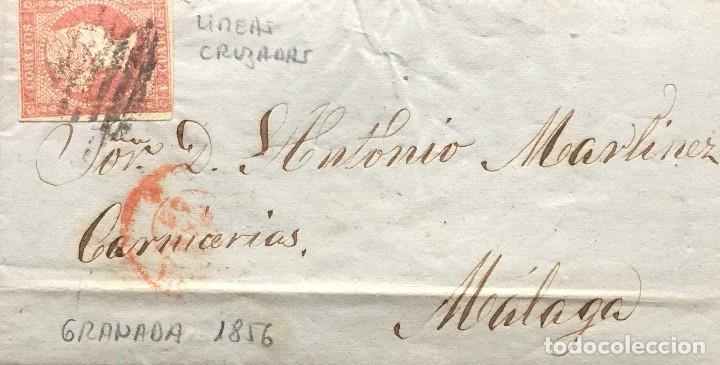 CORREOS 4 CUARTOS
LINEAS
CRUZADAS
Sor. D. Antonio Martinez
Carnicerias.
Málaga
GRANADA 1856
todocoleccion